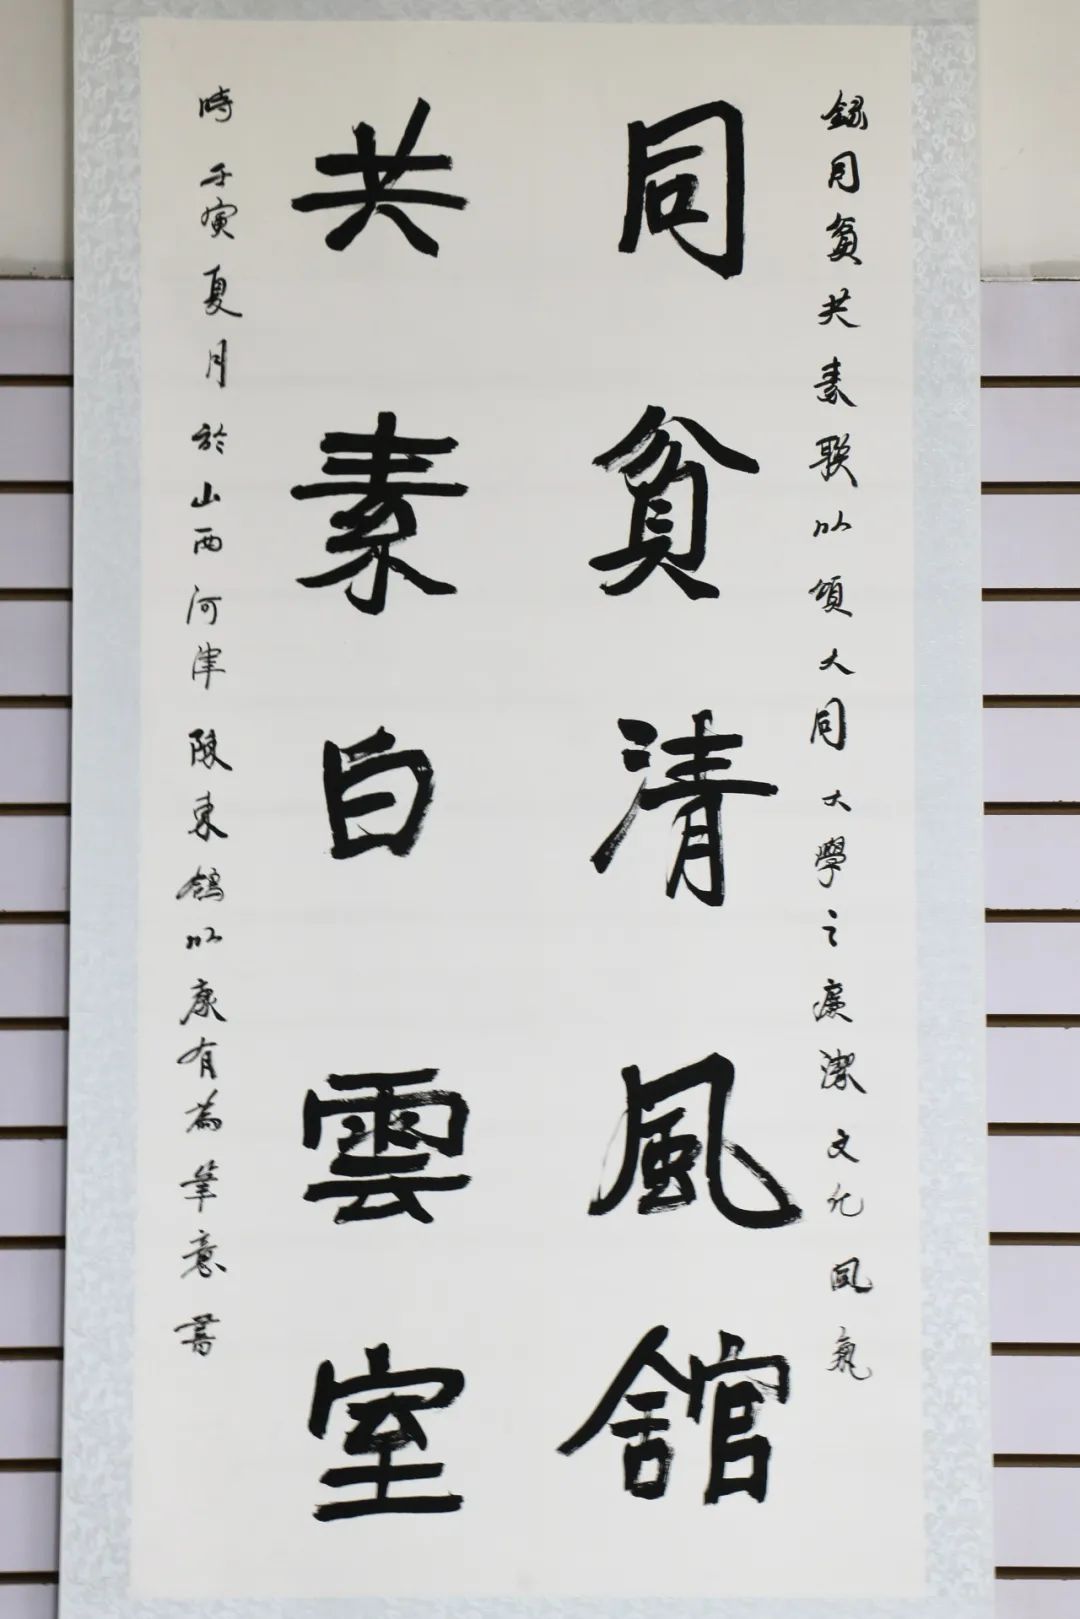 錄同貧共素联以頌大同大學之廉潔文化風氣
同貧清風舘
共素白雲室
時壬寅夏月於山西河津陳東鴿以康有為筆意書